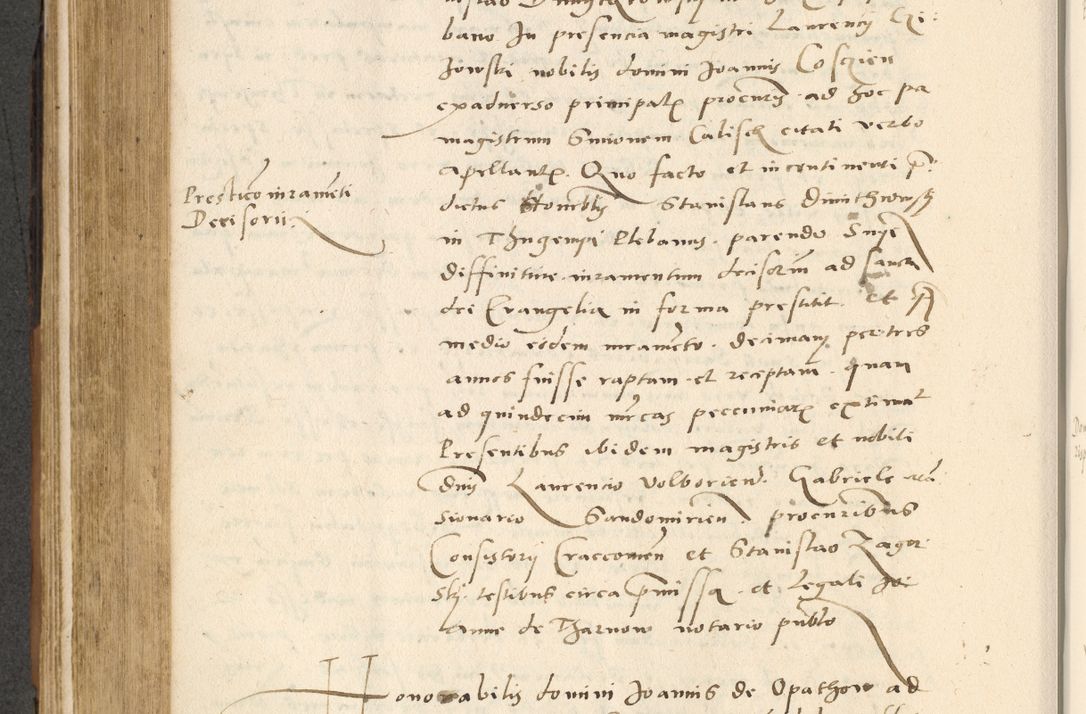 bano In presencia magistri Laurencij
Jowski nobilis domini Joannis Coscien
exaduerso principalis procuris ad hoc pa
magistrum Simonem Calisch citati verbo
apellantis. Quo facto et incontinenti p:
dictus Honorblis Stanislaus
in Thngempi Plebanus. parendo Snye
diffinitiue iuramentum decisorium ad sancta
dei Evangelia in forma prestitit. et
medio eidem iuramento. decimam per tres
annos fuisse raptam et receptam. quam
ad quindecim mrcas peccuniarum
Presentibus ibidem magistris et nobili
dnis Laurencio Volborien. Gabriele
sionario Sandomirien. procuribus
Consistorij Craccouien et Stanislao Zagor
skj. testibus circa pmissa. et Legali Jo
anne de Tharnow notario publo
Prestito iuramenti
Decisorii.
Honorabilis domini Joannis de Opathow ad